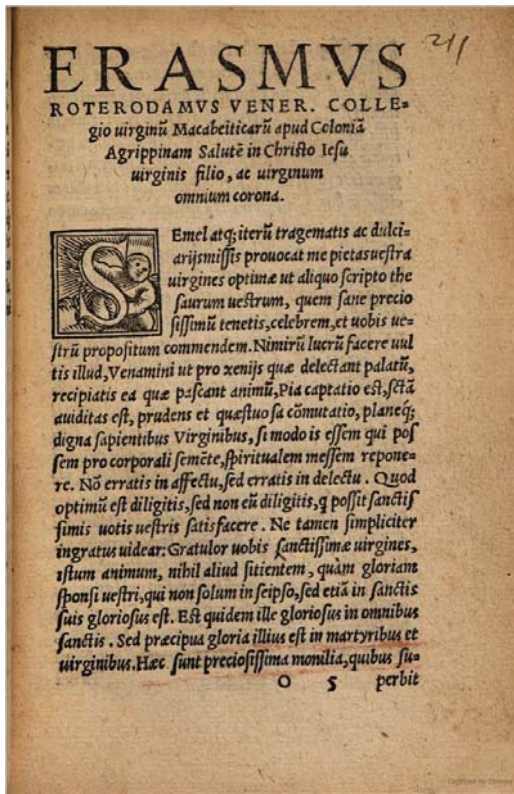 211
ERASMVS
ROTERODAMVS VENER. COLLE=
gio uirginũ Macabeiticarũ apud Coloniã
Agrippinam Salutẽ in Christo Iesu
uirginis filio, ac uirginum
omnium corona.
SEmel atq; iterũ tragematis ac dulci=
arijs missis prouocat me pietas uestra
uirgines optimæ ut aliquo scripto the
saurum uestrum, quem sane precio
sissimũ tenetis, celebrem, et uobis ue=
strũ propositum commendem. Nimirũ lucrũ facere uul
tis illud, Venamini ut pro xenijs quæ delectant palatũ,
recipiatis ea quæ pascant animũ, Pia captatio est, sctã
auiditas est, prudens et quæstuosa cõmutatio, planeq;
digna sapientibus Virginibus, si modo is essem qui pos
sem pro corporali semẽte, spiritualem messem repone=
re. Nõ erratis in affectu, sed erratis in delectu. Quod
optimũ est diligitis, sed non eũ diligitis, q possit sanctis
simis uotis uestris satisfacere. Ne tamen simpliciter
ingratus uidear: Gratulor uobis sanctissimæ uirgines,
istum animum, nihil aliud sitientem, quàm gloriam
sponsi uestri, qui non solum in seipso, sed etiã in sanctis
suis gloriosus est. Est quidem ille gloriosus in omnibus
sanctis. Sed præcipua gloria illius est in martyribus et
uirginibus. Hæc sunt preciosissima monilia, quibus su=
O 5 perbit
Digitized by Google